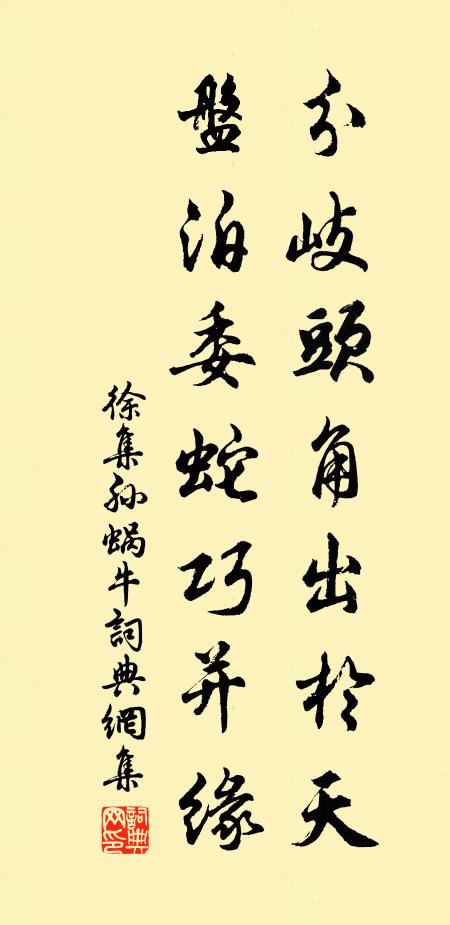 分岐頭角出於天
盤泊委蛇巧并緣
徐集孙蝸牛詞典網集
詞典网印